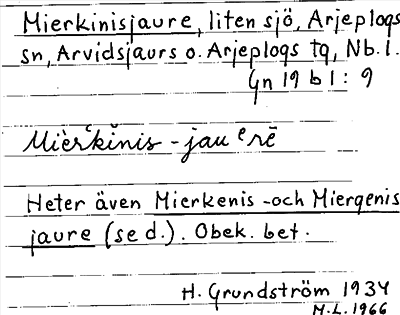 Mierkinisjaure, liten sjö, Arjeplogs
sn, Arvidsjaurs o. Arjeplogs tg, Nb. l.
Gn 19 b 1 : 9
Mìerʿkĭnis - jauᵉrē
Heter även Mierkenis - och Miergenis
jaure (se d.). Obek. bet.
H. Grundström 1934
M.L. 1966